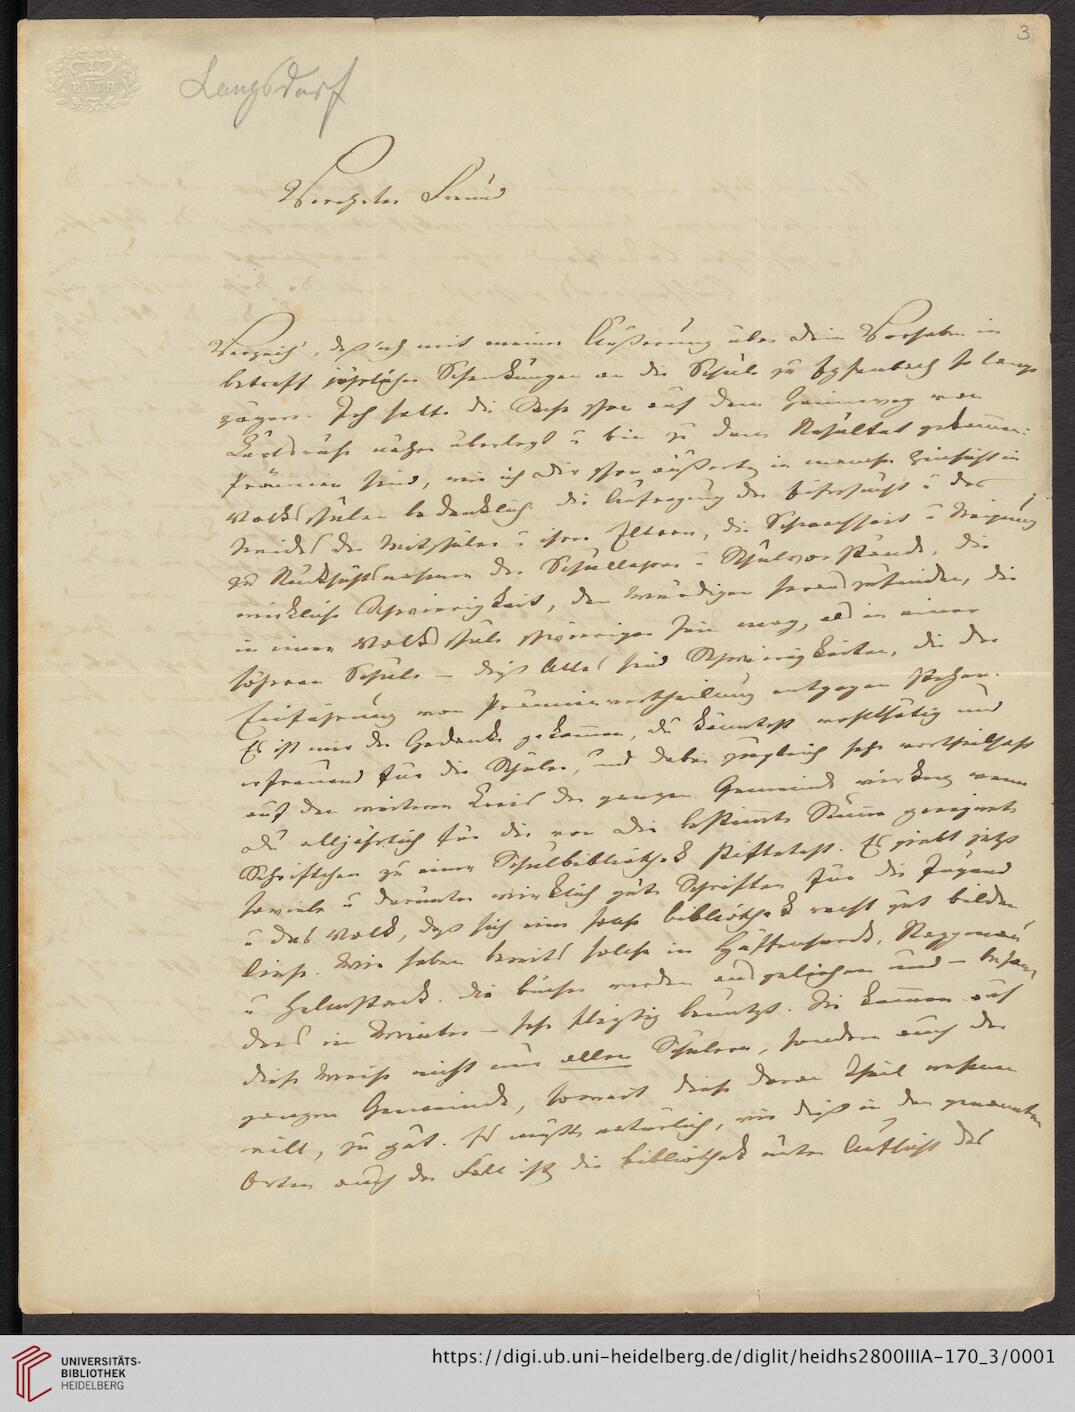 3
BATH
Langsdorf
Verehrter Freund
Verzeih', daß ich mit meiner Äußerung über dein Vorhaben in
betreff jährlicher Schenkungen an die Schule zu Epfenbach so lange
zögere. Ich hatte die Sache schon auf dem Heimweg von
Carlsruhe näher überlegt u bin zu dem Resultat gekommen:
Prämien sind, wie ich dir schon äußerte, in mancher Hinsicht in
Volksschulen bedenklich. die Aufregung der Eifersucht u des
Neides der Mitschüler u ihrer Eltern, die Schwachheit u Neigung
zu Rücksichtsnahmen der Schullehrer u Schulvorstände, die
wirkliche Schwierigkeit, den Würdigen herauszufinden, die
in einer Volksschule schwieriger sein mag, als in einer
höheren Schule – dieß Alles sind Schwierigkeiten, die der
Einführung von Prämienvertheilung entgegen stehen.
Es ist mir der Gedanke gekommen, du könntest wohlthätig und
erfreuend für die Schüler, und dabei zugleich sehr vortheilhaft
auf den weiteren Kreis der ganzen Gemeinde wirken, wenn
du alljährlich für die von dir bestimmte Summe geeignete
Schriftchen zu einer Schulbibliothek stiftetest. Es giebt jetzt
soviele u darunter wirklich gute Schriften für die Jugend
u das Volk, daß sich eine solche bibliothek recht gut bilden
ließe. Wir haben bereits solche in Hüffenhardt, Neggenau
u Helmstadt. die bücher werden ausgeliehen und – beson-
ders im Winter – sehr fleißig benützt. Sie kommen auf
diese Weise nicht nur allen Schülern, sondern auch der
ganzen Gemeinde, soweit diese daran Theil nehmen
will, zu gut. Es müßte natürlich, wie dieß in den genannten
Orten auch der Fall ist, die bibliothek unter Aufsicht des
UNIVERSITÄTS-
BIBLIOTHEK
HEIDELBERG
https://digi.ub.uni-heidelberg.de/diglit/heidhs2800IIIA-170_3/0001